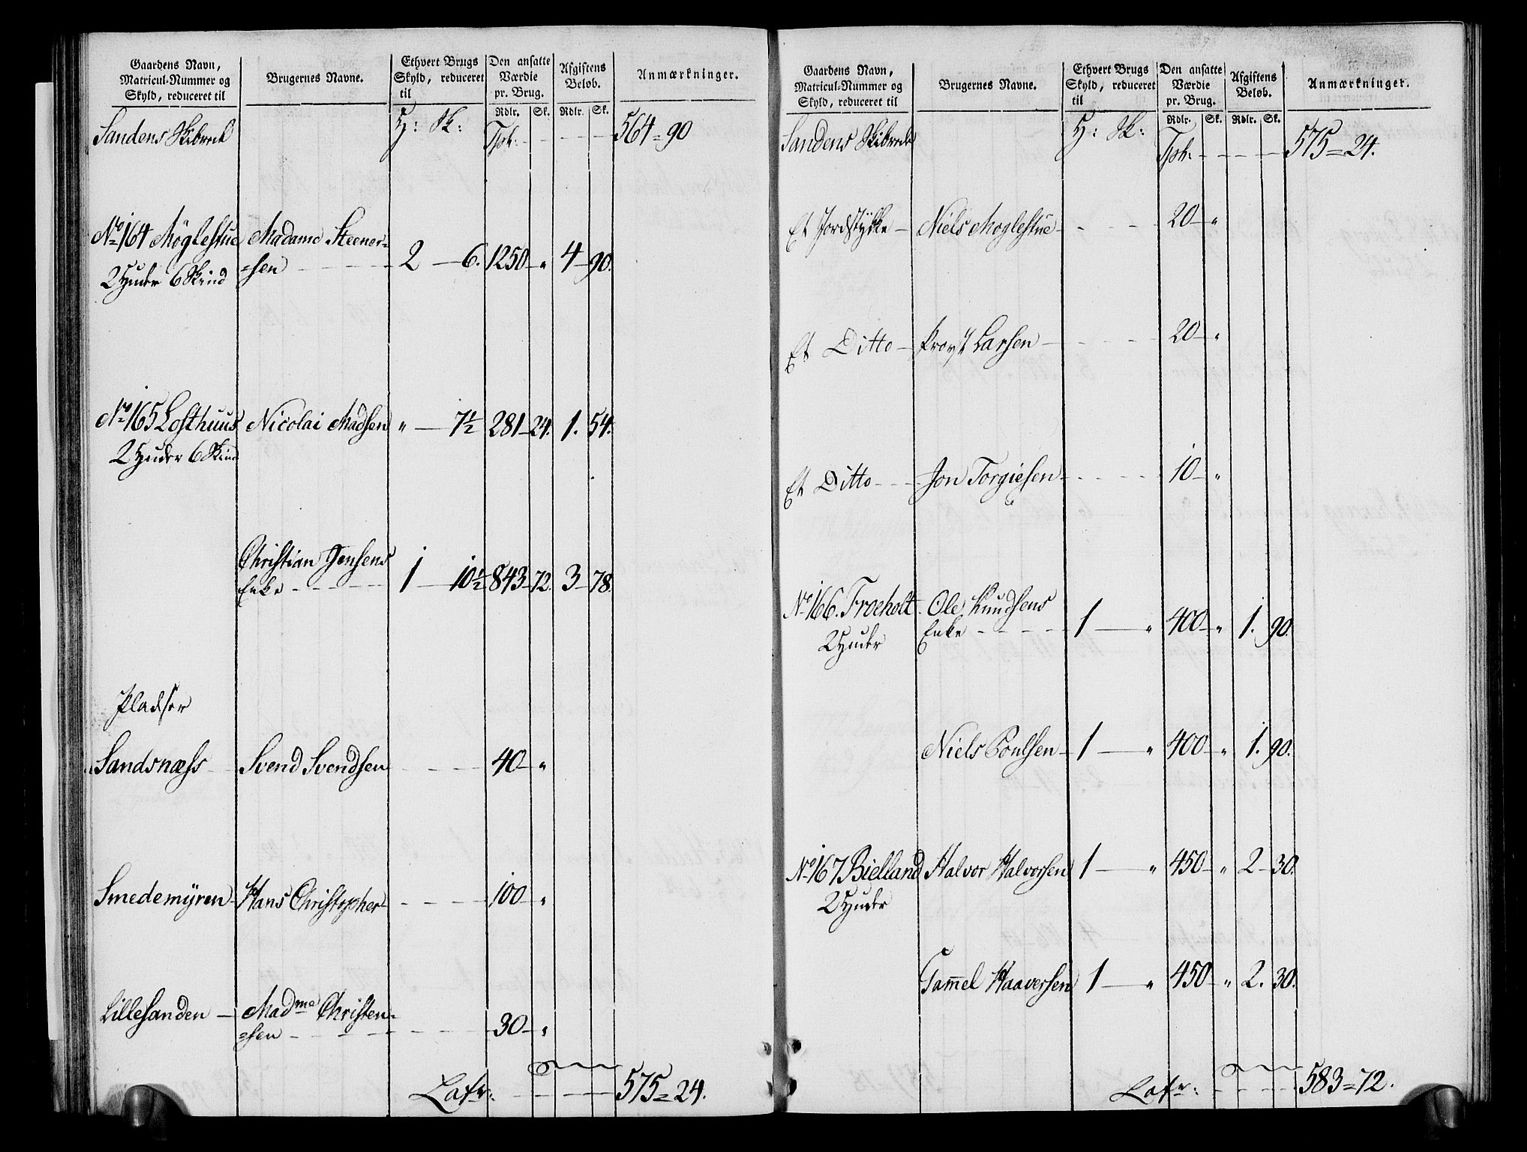 Gaardens Navn, Matricul-Nummer og Skyld, reduceret til
Brugernes Navne.
Ethvert Brugs Skyld, reduceret til
Den ansatte Værdie pr. Brug.
Afgiftens Beløb.
Anmærkninger.
Rdlr. Sk. Rdlr. Sk.
Sandens Skibrede H: Sk: Tpt: 564=90
No 164 Møglestue Madame Steener-
2 Huder 6 Skind =sen 2 — 6. 1250 " 4-90.
No 165 Losthuus Nicolai Madsen " — 7½ 281-24. 1. 54.
2 Huder 6 Skind
Christian Jensens
Enke 1 — 10½ 843-72. 3-78.
Pladser
Sandsnæss Svend Svendsen 40 "
Smedemyren Hans Christopher 100 "
Lillesanden Madme Christen-
=sen 30 "
Latr: 575=24.
Gaardens Navn, Matricul-Nummer og Skyld, reduceret til
Brugernes Navne.
Ethvert Brugs Skyld, reduceret til
Den ansatte Værdie pr. Brug.
Afgiftens Beløb.
Anmærkninger.
Rdlr. Sk. Rdlr. Sk.
Sandens Skibrede H: Sk: Tpt. 575=24.
Et Jordstykke Niels Møglestue 20 "
Et Ditto Larsen 20 "
Et Ditto Jon Torgiesen 10 "
No 166. Troeholt Ole Knudsens
2 Huder Enke 1 — " 400 " 1. 90.
Niels Poulsen 1 — " 400 " 1. 90.
No 167 Bielland Halvor Halvorsen 1 — " 450 " 2-30.
2 Huder
Gamel Haaversen 1 — " 450 " 2. 30.
Latr: 583=72.